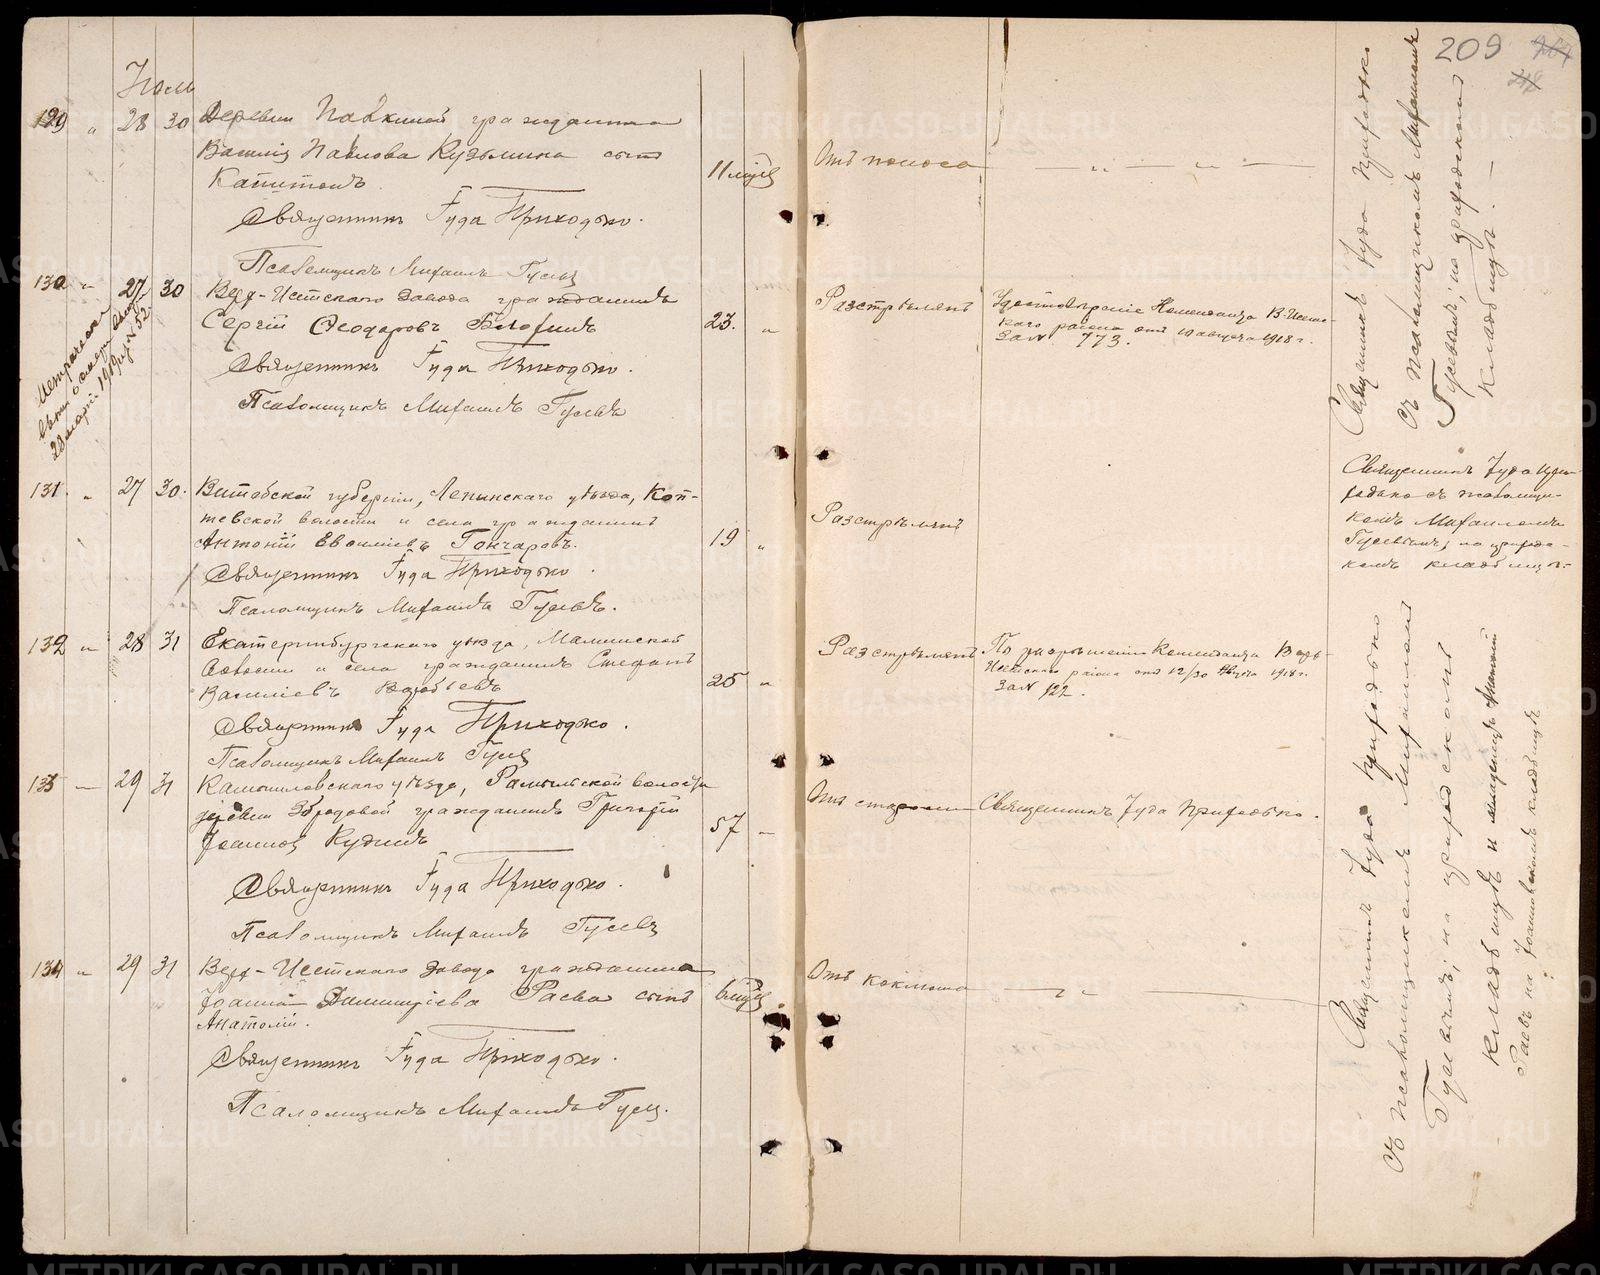 209
Іюль
129 " 28 30 Деревни Палкиной гражданина
Василія Павлова Кузьмина сынъ
Капитонъ.
11 мѣсяц
Отъ поноса
Священникъ Іуда Приходько.
Псаломщикъ Михаилъ Гусевъ
130 " 27 30 Верх-Исетскаго завода гражданинъ
Сергій Ѳеодоровъ
23. "
Разстрѣлянъ
Удостовѣреніе Коменданта В-Исетс-
каго района отъ 10 августа 1918 г.
За № 773.
Священникъ Іуда Приходько.
Псаломщикъ Михаилъ Гусевъ
Метрическая
131. " 27 30. Витебской губерніи, Лепельскаго уѣзда,
волости и села гражданинъ
Антоній Евсиміевъ Гончаровъ.
19 "
Разстрѣлянъ
Священникъ Іуда Приходько.
Псаломщикъ Михаилъ Гусевъ.
132 " 28 31 Екатеринбургскаго уѣзда,
волости и села гражданинъ Стефанъ
Василіевъ
25 "
Разстрѣлянъ
По разрѣшенію Коменданта Верх-
Исетскаго района отъ 12/30 Августа 1918 г.
За № 122.
Священникъ Іуда Приходько.
Псаломщикъ Михаилъ Гусевъ
133 — 29 31 Камышловскаго уѣзда, волости
деревни гражданинъ Григорій
Іоанновъ
57 —
Отъ старости
Священникъ Іуда Приходько.
Священникъ Іуда Приходько.
Псаломщикъ Михаилъ Гусевъ
134 " 29 31 Верх-Исетскаго завода гражданина
Іоанна Димитріева Раева сынъ
Анатолій.
6 мѣсяц
Отъ коклюша
Священникъ Іуда Приходько.
Псаломщикъ Михаилъ Гусевъ.
Священникъ Іуда Приходько
съ псаломщикомъ Михаиломъ
Гусевымъ; на приходскомъ
кладбищѣ. —
Священникъ Іуда При-
ходько съ псаломщи-
комъ Михаиломъ
Гусевымъ; на приходс-
комъ кладбищѣ.
Священникъ Іуда Приходько
съ псаломщикомъ Михаиломъ
Гусевымъ; на приходскомъ
кладбищѣ и младенецъ Анатолій
Раевъ на Іоанновскомъ кладбищѣ
METRIKI.GASO-URAL.RU